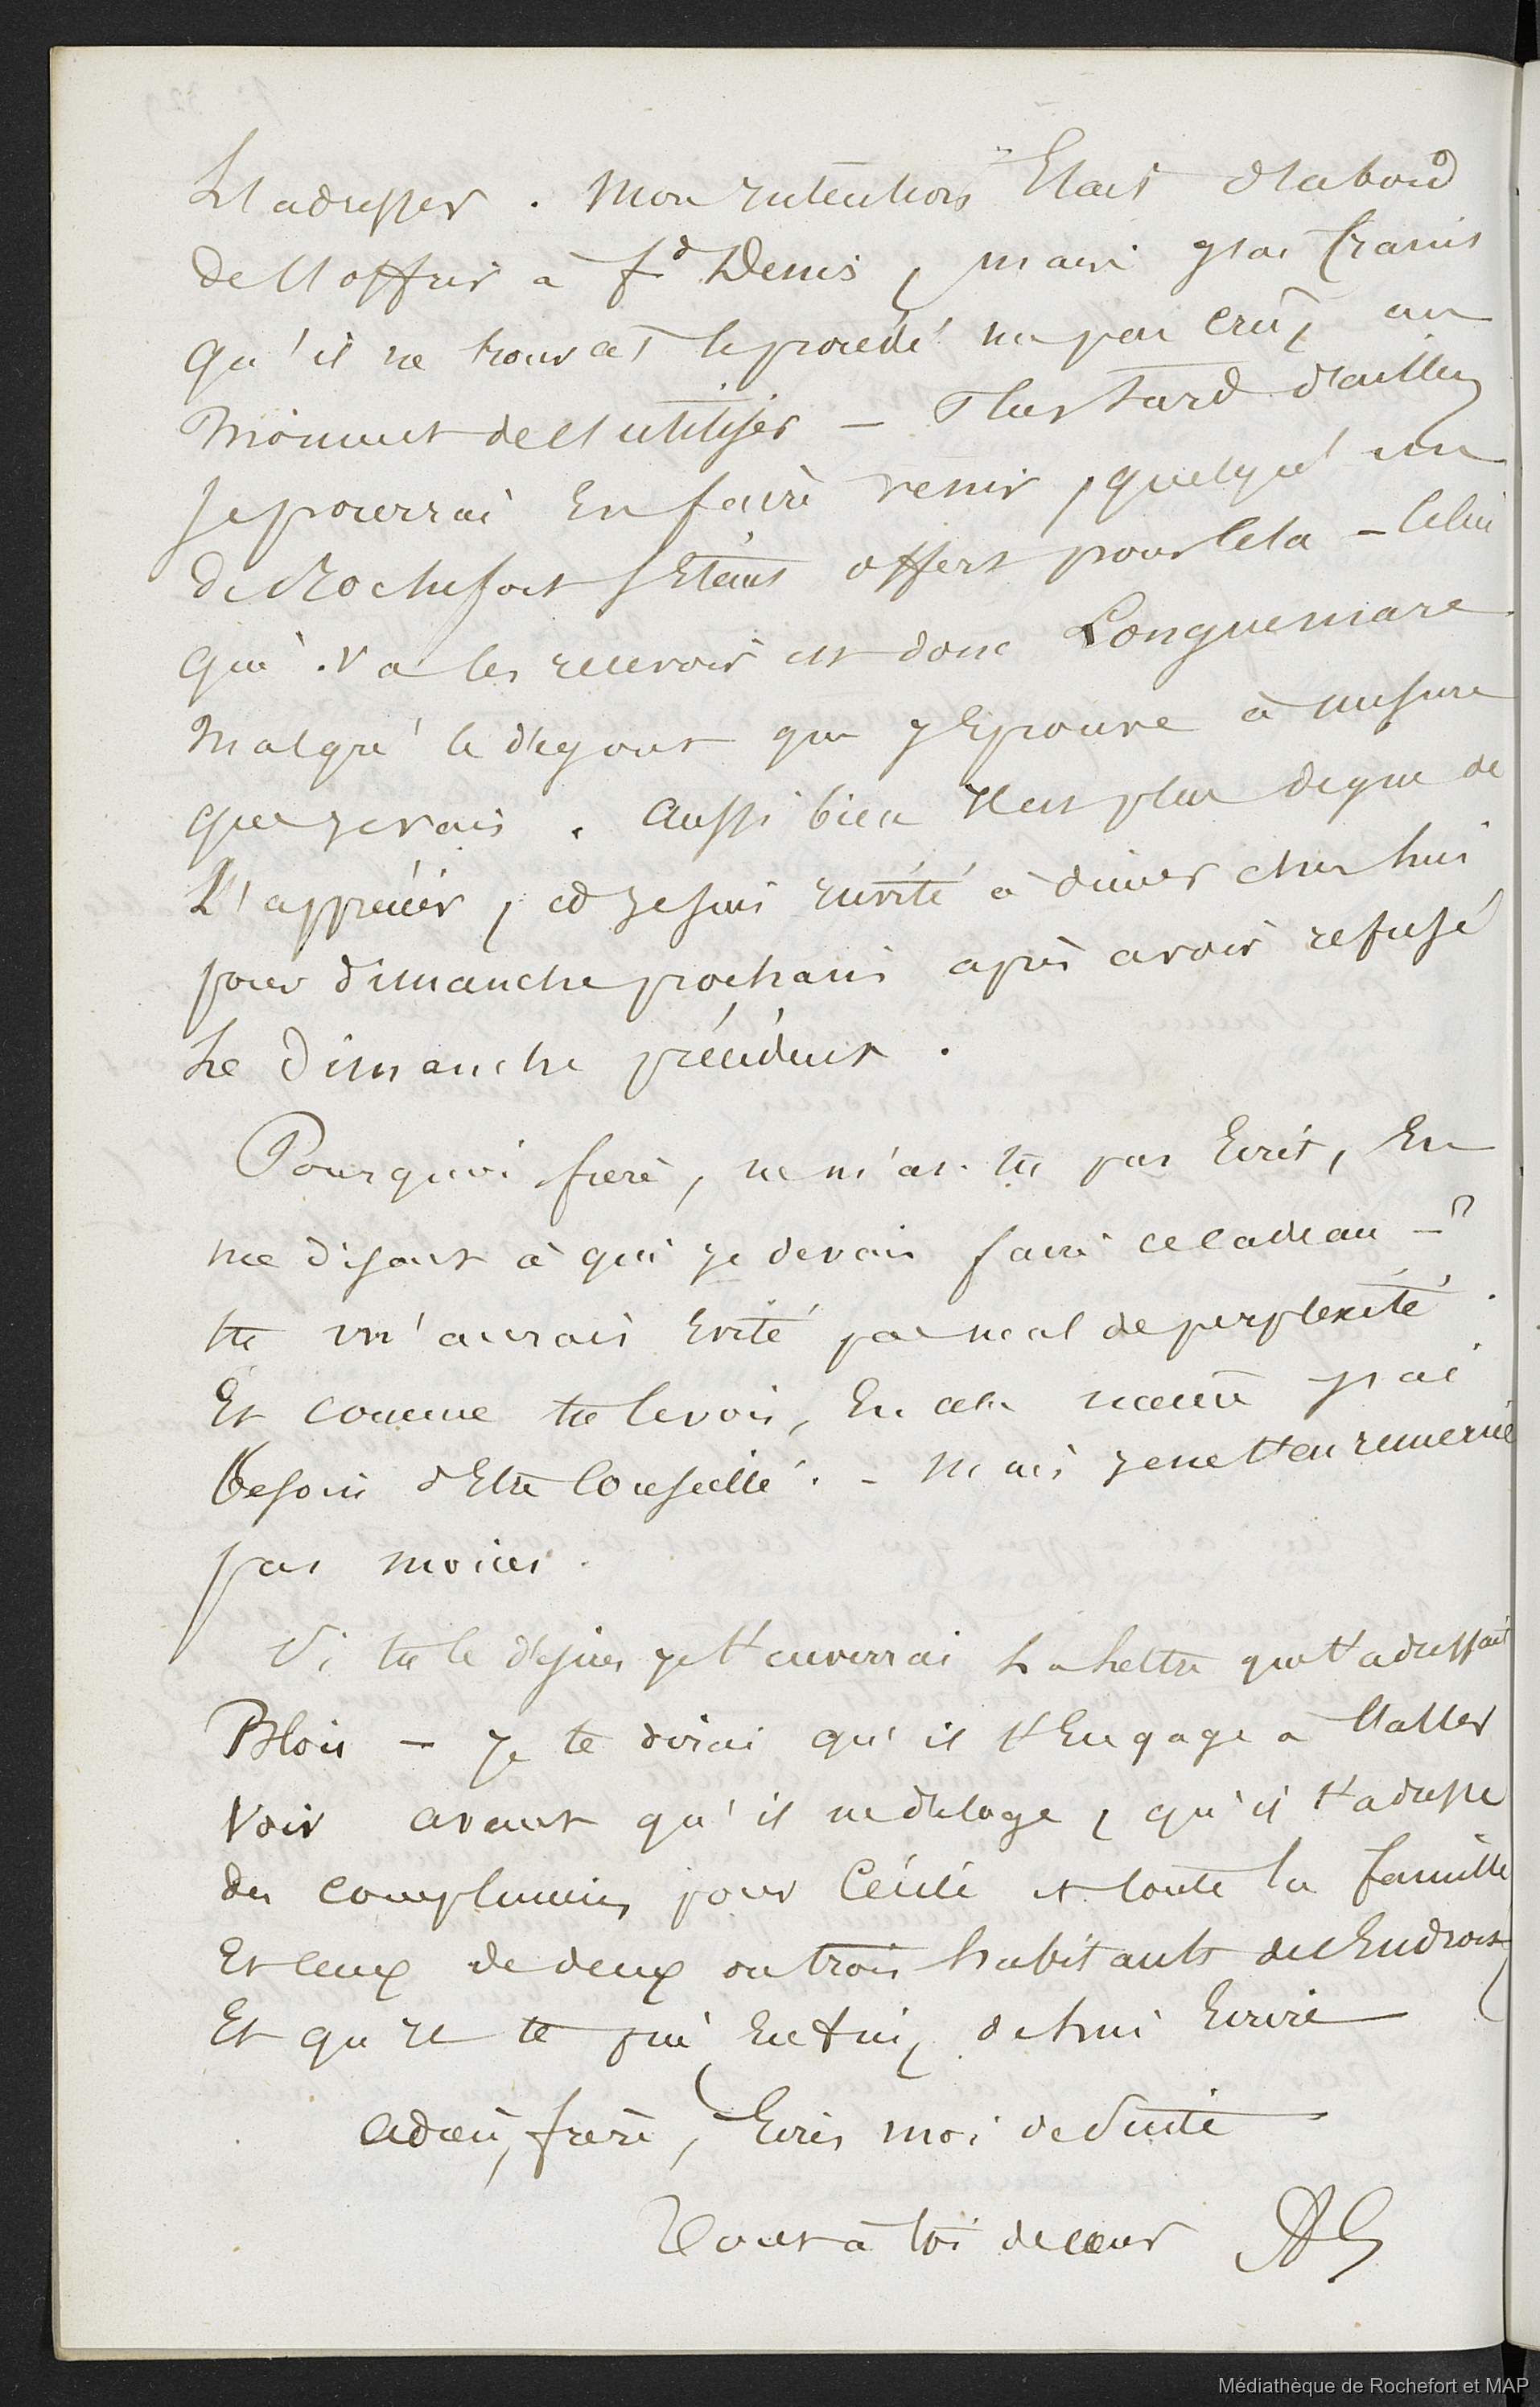 L'adresser . Mon intention Etait d'abord
de l'offrir à fd Denis, mais j'ai craint
qu'il ne trouvat le procédé un peu crû, au
Moment de l'utiliser — Plus tard d'ailleurs
je pourrai En faire venir, quelqu'un
de Rochefort s'Etant offert pour Cela — Celui
qui va les recevoir est donc Longuemare
Malgré le dégout que j'Eprouve à mesure
que je vais . Aussi bien Il est plus digne de
L'apprécier, et je suis invité à diner chez lui
pour dimanche prochain après avoir refusé
Le Dimanche précédent .
Pourquoi frère, ne m'as-tu pas Ecrit, En
me disant à qui je devais faire ce cadeau — ?
tu m'aurais Evité pas mal de perplexité .
Et comme tu le vois, En cela j'ai
besoin d'Etre Conseillé . — Mais je ne t'en remercie
pas moins .
Si tu le désires je t'enverrai La Lettre que t'adressait
Blois — Je te dirai qu'il t'Engage à l'aller
Voir avant qu'il ne déloge, qu'il t'adresse
des complimens pour Cécile et toute la famille
Et ceux de deux ou trois habitants de l'Endroit,
Et qu'Il te prie Enfin, de lui Ecrire
Adieu, frère, Ecris moi de Suite
Tout à toi de cœur AL
Médiathèque de Rochefort et MAP